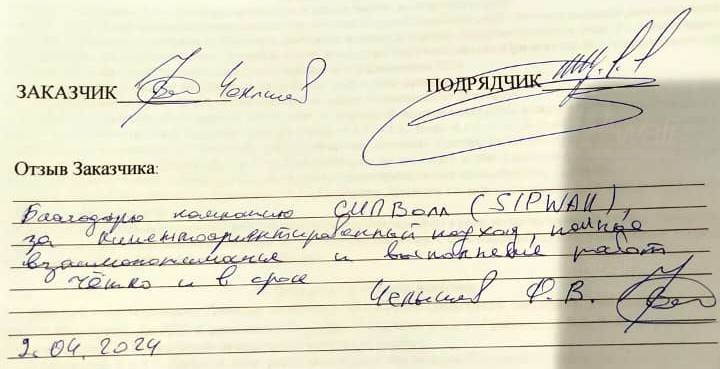 ЗАКАЗЧИК Челышев ПОДРЯДЧИК
Отзыв Заказчика:
Благодарю компанию СИПВолл (SIPWAll),
за клиентоориентированный подход, полное
взаимопонимание и выполнение работ
чётко и в срок Челышев Ф.В.
2.04.2024